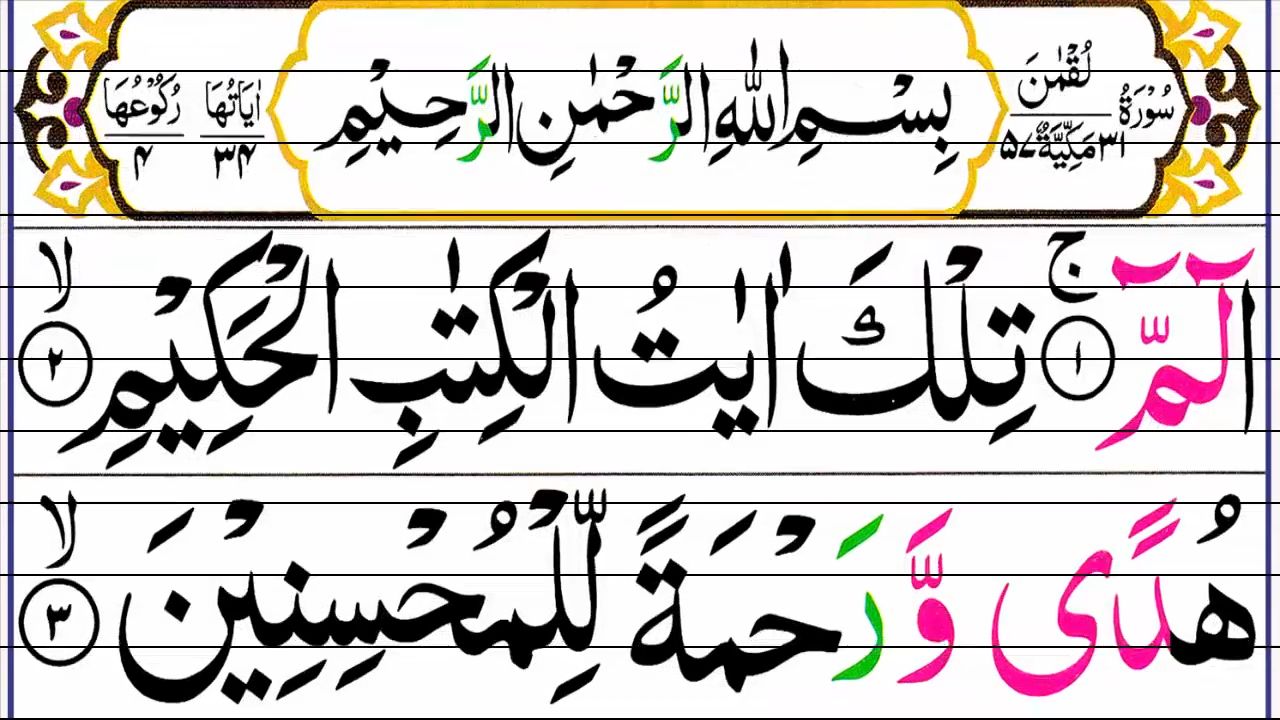 سُوْرَةُ لُقْمٰنَ ٣١ مَكِّيَّةٌ ٥٧
بِسْمِ اللّٰهِ الرَّحْمٰنِ الرَّحِيْمِ
اٰيَاتُهَا ٣٤ رُكُوْعُهَا ٤
الٓمّٓ ۚ ١ تِلْكَ اٰيٰتُ الْكِتٰبِ الْحَكِيْمِ ۙ ٢
هُدًى وَّرَحْمَةً لِّلْمُحْسِنِيْنَ ۙ ٣